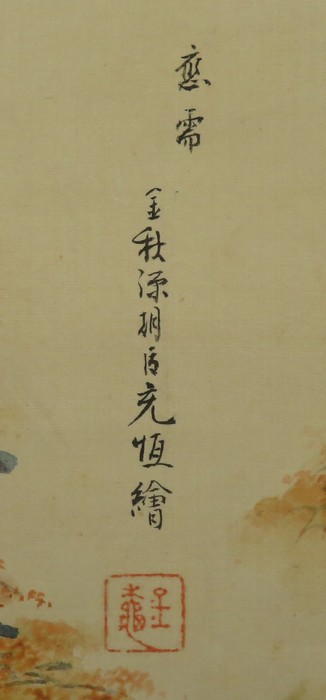 應需
金秋源朝臣充恒繪